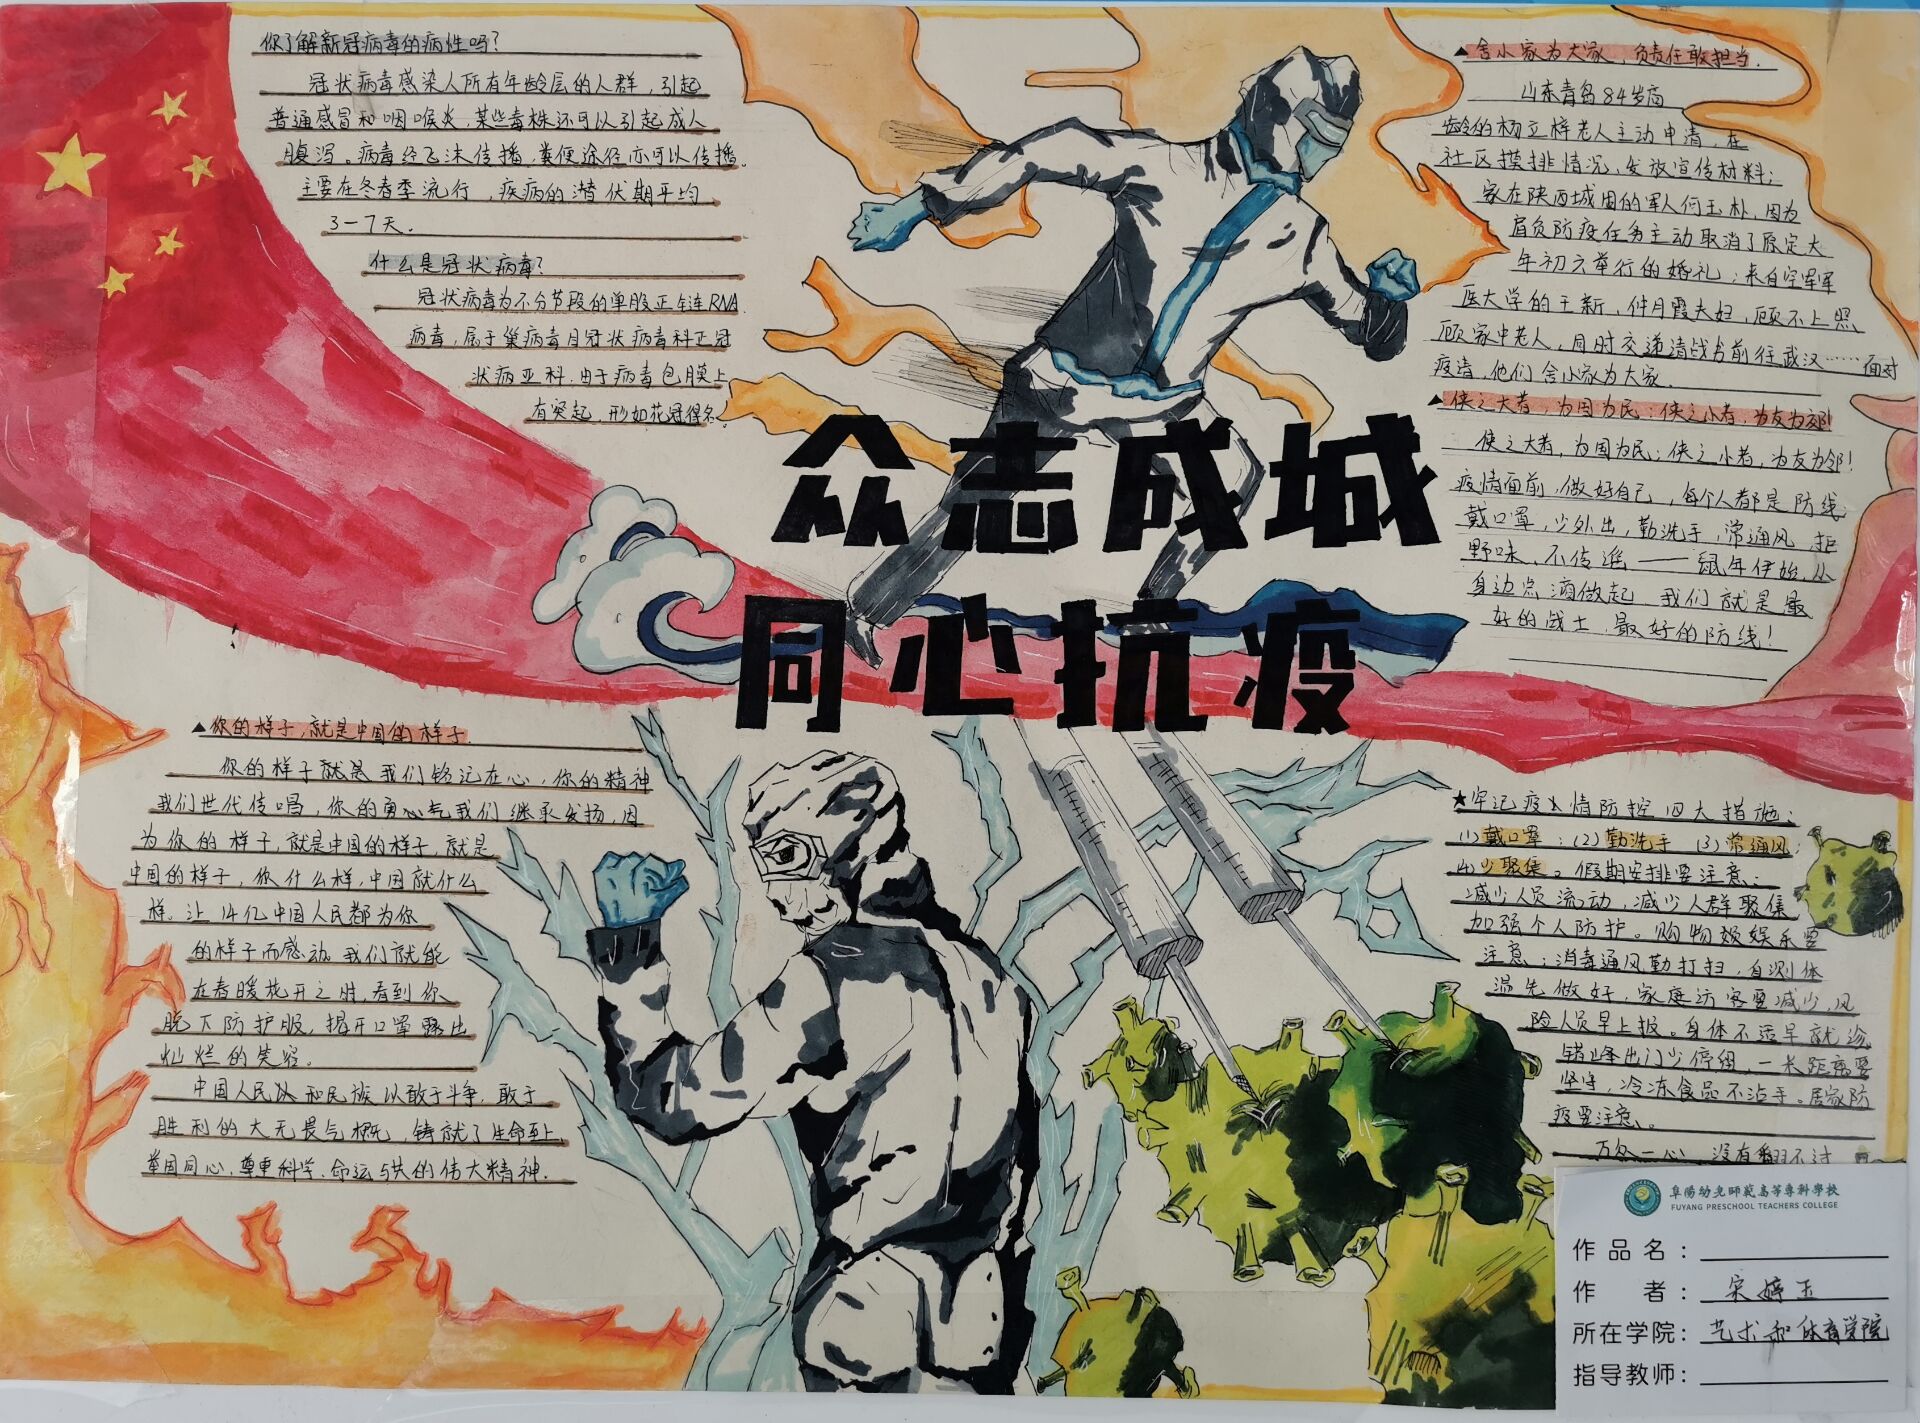 你了解新冠病毒的病性吗？
冠状病毒感染人所有年龄层的人群，引起
普通感冒和咽喉炎，某些毒株还可以引起成人
腹泻。病毒经飞沫传播，粪便途径亦可以传播。
主要在冬春季流行，疾病的潜伏期平均
3-7天。
什么是冠状病毒？
冠状病毒为不分节段的单股正链RNA
病毒，属于巢病毒目冠状病毒科正冠
状病亚科，由于病毒包膜上
有突起，形如花冠得名。
▲舍小家为大家，负责任敢担当.
山东青岛84岁高
龄的杨立梓老人主动申请，在
社区摸排情况，发放宣传材料；
家在陕西城固的军人何玉朴，因为
肩负防疫任务主动取消了原定大
年初六举行的婚礼；来自空军军
医大学的王新，仵月霞夫妇，顾不上照
顾家中老人，同时交递请战书前往武汉……面对
疫请，他们舍小家为大家.
▲侠之大者，为国为民；侠之小者，为友为邻！
侠之大者，为国为民；侠之小者，为友为邻！
疫情面前，做好自己，每个人都是防线；
戴口罩，少外出，勤洗手，常通风，拒
野味，不传谣——鼠年伊始，从
身边点滴做起，我们就是最
好的战士，最好的防线！
众志成城
同心抗疫
▲你的样子，就是中国的样子.
你的样子就是我们铭记在心，你的精神
我们世代传唱，你的勇气我们继承发扬，因
为你的样子，就是中国的样子，就是
中国的样子，你什么样，中国就什么
样。让14亿中国人民都为你
的样子而感动。我们就能
在春暖花开之时，看到你
脱下防护服，揭开口罩露出
灿烂的笑容。
中国人民以和民族以敢于斗争，敢于
胜利的大无畏气概，铸就了生命至上
举国同心，尊重科学，命运与共的伟大精神.
★牢记疫情防控四大措施：
(1)戴口罩；(2)勤洗手 (3)常通风；
(4)少聚集。假期安排要注意：
减少人员流动，减少人群聚集
加强个人防护。购物娱乐要
注意：消毒通风勤打扫，自测体
温先做好，家庭访客要减少，风
险人员早上报。身体不适早就诊
错峰出门少停留，一米距离要
坚守，冷冻食品不沾手。居家防
疫要注意。
万众一心，没有翻不过
阜陽幼兒師範高等專科學校
FUYANG PRESCHOOL TEACHERS COLLEGE
作品名：
作者：宋婷玉
所在学院：艺术和体育学院
指导教师：